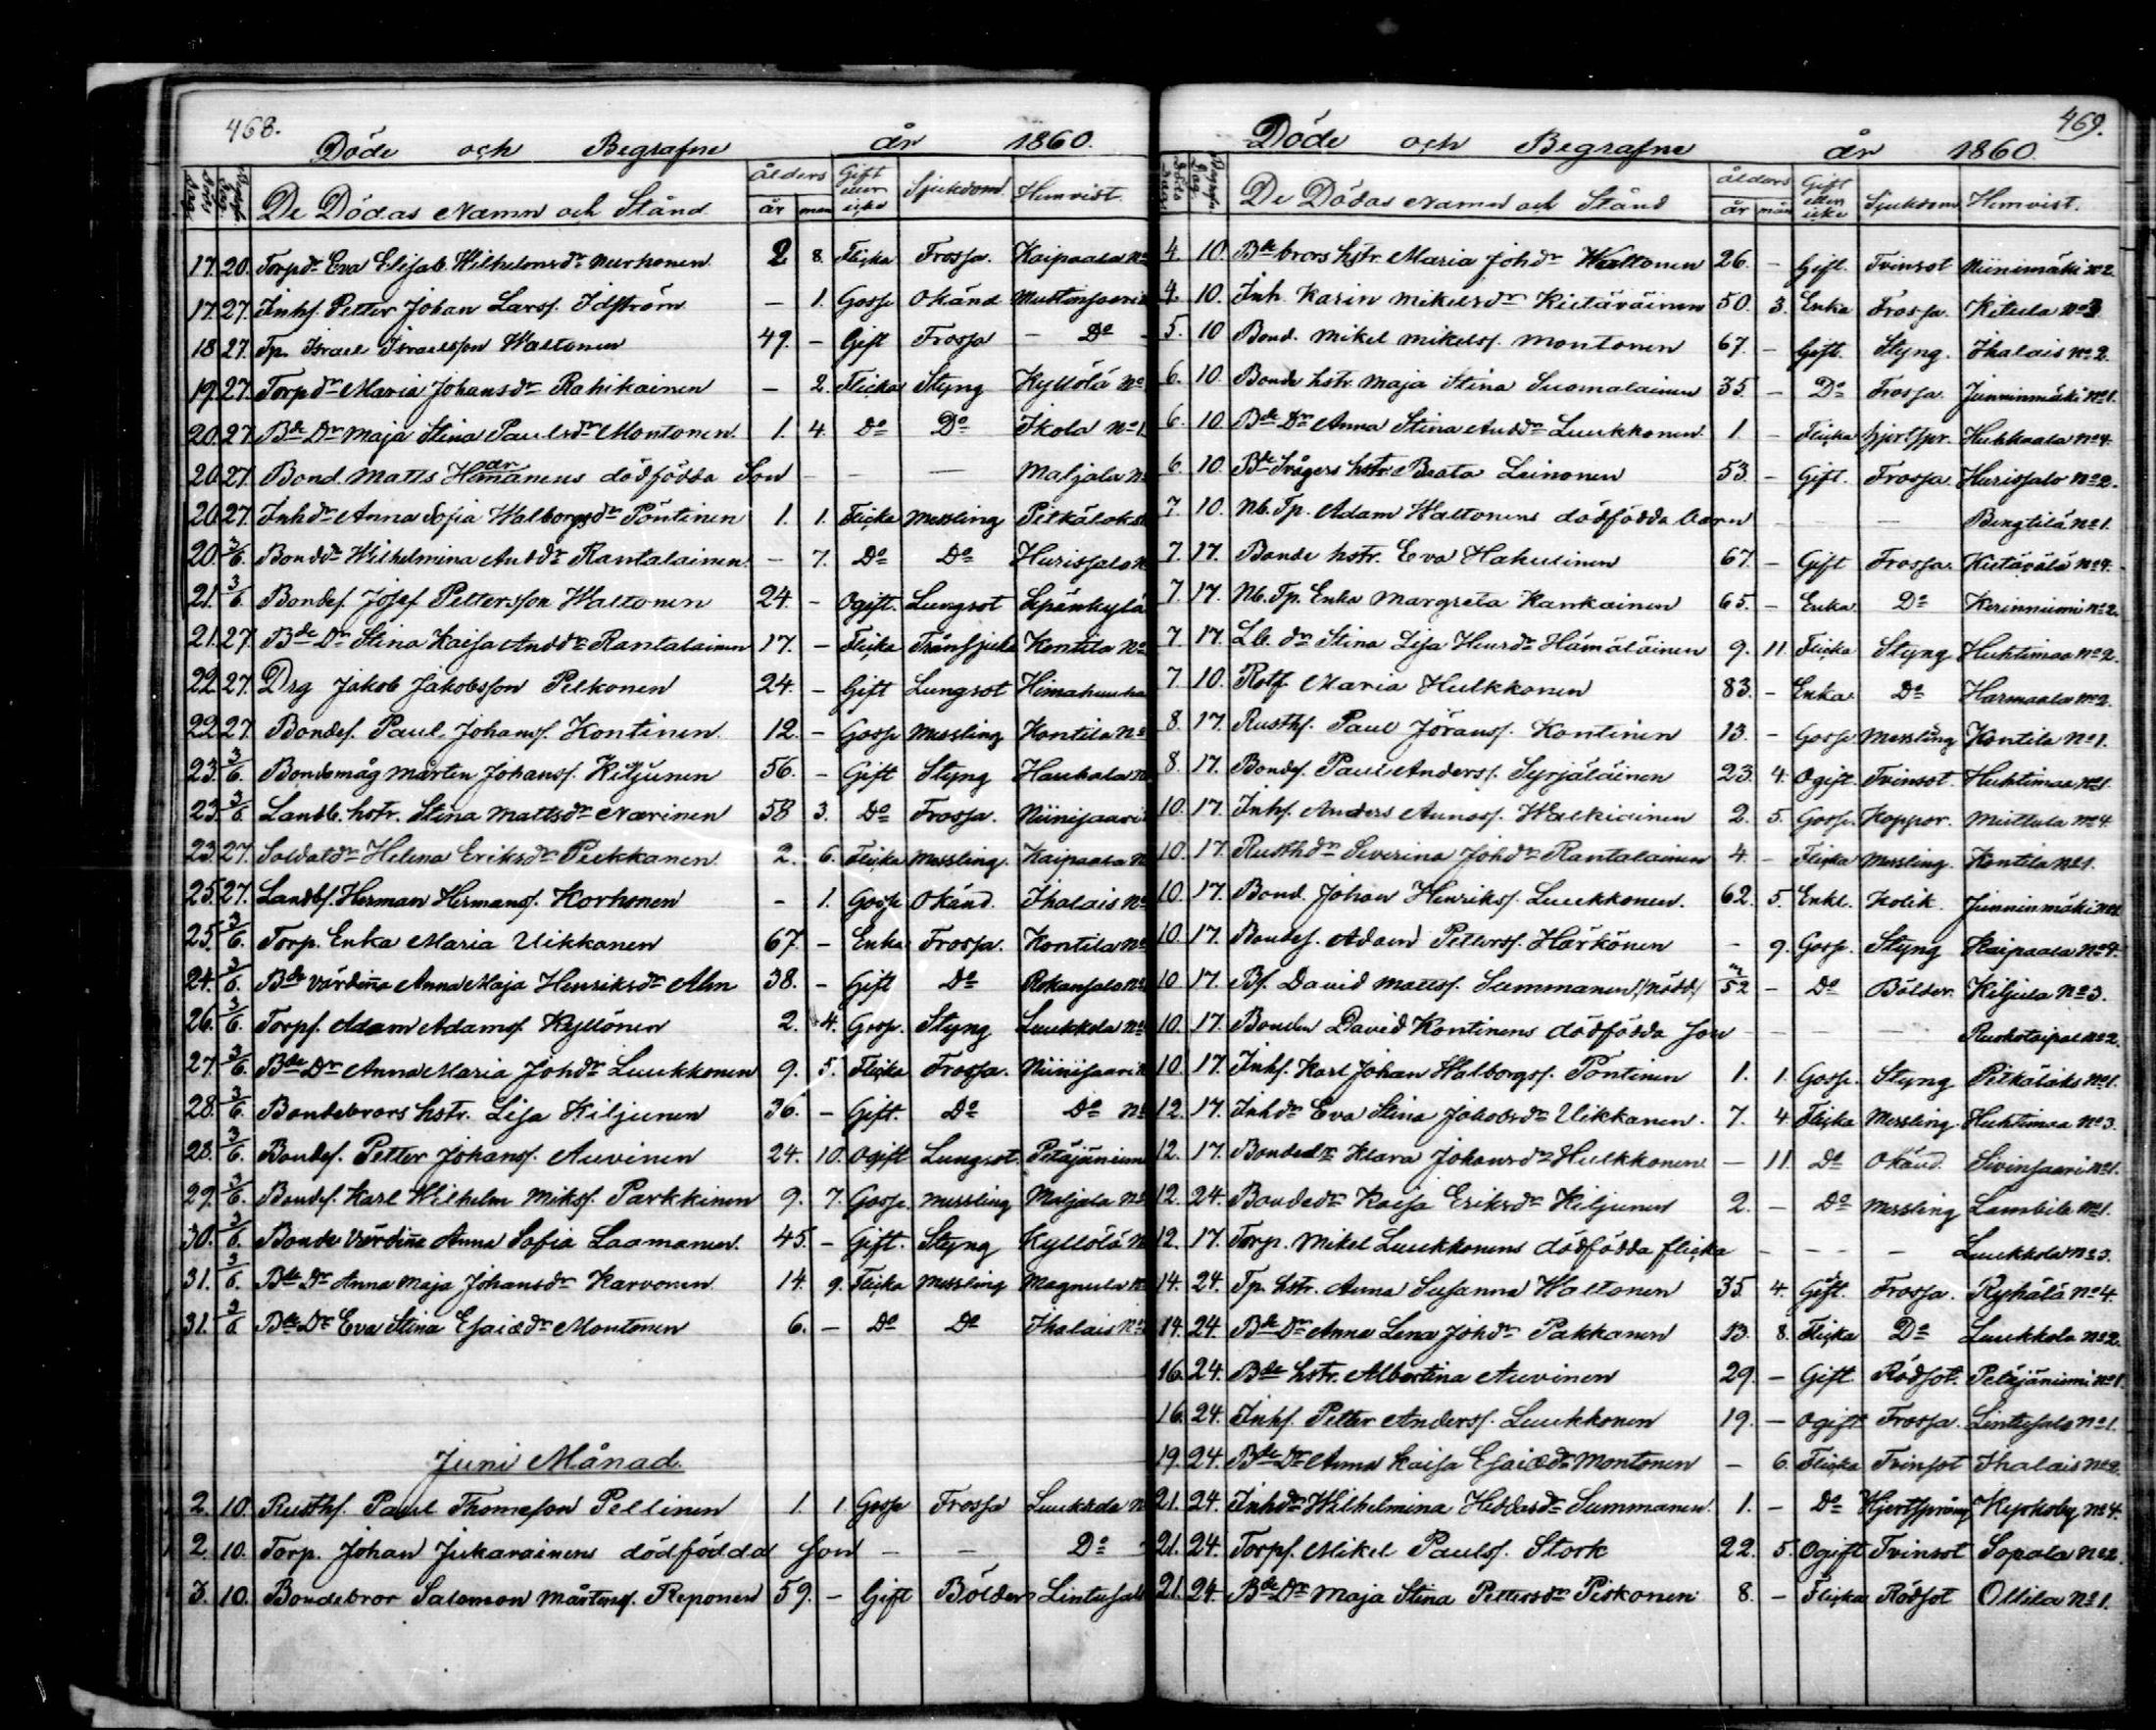 468.
Döde och Begrafne år 1860.
De Dödas Namn och Stånd ålders år mån Gift eller icke Sjukdom Hemvist.
17. 20. Torpdr Eva Elisab. Wilhelmsdr Murhonen 2 8. Flicka Frossa. Kaipaala No
17. 27. Inhs. Petter Johan Larss. Idström — 1. Gosse Okänd Muttinsaari
18 27. Tp. Israel Israelsson Waltonen 49. — Gift Frossa — Do
19. 27. Torpdr Maria Johansdr Rahikainen — 2. Flicka Styng Kyllölä No
20. 27. Bde Dr Maja Stina Paulsdr Montonen. 1. 4. Do Do Ikola No 1.
20. 27. Bond. Matts dödfödda Son — — — Maljala No
20. 27. Inhdr Anna Sofia Walborgsdr Pöntinen 1. 1. Flicka Messling Pitkälaks
20. 3/6. Bonddr Wilhelmina Anddr Rantalainen. — 7. Do Do Hurissalo N
21. 3/6. Bondes. Josef Pettersson Waltonen 24. — Ogift. Lungsot Sepänkylä
21. 27. Bde Dr Stina Kaisa Anddr Rantalainen 17. — Flicka Trånsjuka Kontila No
22. 27. Drg Jakob Jakobsson Pelkonen 24. — Gift Lungsot Himahuuha
22 27. Bondes. Paul Johanss. Kontinen. 12. — Gosse Messling Kontila No
23. 3/6. Bondemåg Mårten Johanss. Kiljunen 56. — Gift Styng Haukala N
23. 3/6. Landb. hstr. Stina Mattsdr Närinen 58 3. Do Frossa. Niinisaari
23. 27. Soldatdr Helena Eriksdr Pukkanen. 2. 6. Flicka Messling. Kaipaala N
25. 27. Landbs. Herman Hermanss. Korhonen — 1. Gosse Okänd. Ihalais No
25. 3/6. Torp. Enka Maria Uikkanen 67. — Enka Frossa. Kontila No
24. 3/6. Bde värdinna Anna Maja Henriksdr Alm 38. — Gift Do Rokansalo No
26. 3/6. Torps. Adam Adams. Kyllönen 2. 4. Gosse. Styng Luukkola No
27. 3/6. Bde Dr Anna Maria Johdr Luukkonen 9. 5. Flicka Frossa. Niinisaari
28. 3/6. Bondebrors hstr. Lisa Kiljunen 36. — Gift. Do Do No
28. 3/6. Bondes. Petter Johanss. Auvinen 24. 10. Ogift Lungsot. Petäjäniem
29. 3/6. Bondes. Karl Wilhelm Mikss. Parkkinen 9. 7. Gosse. Messling Maljala No
30. 3/6. Bonde Värdinna Anna Sofia Laamanen. 45. — Gift. Styng Kyllölä N
31. 3/6. Bde Dr Anna Maja Johansdr Karvonen 14. 9. Flicka Messling Magnula N
31. 3/6. Bde Dr Eva Stina Esaiædr Montonen 6. — Do Do Ihalais No
Juni Månad.
2. 10. Rusths. Paul Thomesson Pellinen 1. 1. Gosse Frossa Luukkola N
2. 10. Torp. Johan Jukarainens dödfödda Son — — Do
3. 10. Bondebror Salomon Mårtenss. Reponen 59. — Gift Bölder Lintusalo
469.
Döde och Begrafne år 1860.
De Dödas Namn och Stånd ålders år mån Gift eller icke Sjukdom Hemvist.
4. 10. Bde brors hstr. Maria Johdr Waltonen 26. — Gift. Tvinsot Niinimäki No 2
4. 10. Inh. Karin Mikelsdr Kietäväinen 50. 3. Enka Frossa. Kitula No 3
5. 10 Bond. Mikel Mikelss. Montonen 67. — Gift. Styng. Ihalais No 2.
6. 10. Bonde hstr. Maja Stina Suomalainen 35. — Do Frossa. Junninmäki No 1.
6. 10. Bde Dr Anna Stina Anddr Luukkonen 1. — Flicka hjertspr. Hukkaala No 4.
6. 10. Bde Svågers hstr. Beata Leinonen 53. — Gift. Frossa. Hurissalo No 2.
7. 10. Nb. Tp. Adam Waltonens dödfödda barn — — — Bengtilä No 1.
7. 17. Bonde hstr. Eva Hakulinen 67. — Gift Frossa. Kietävälä No 4.
7. 17. Nb. Tp. Enka Margreta Kankainen 65. — Enka Do Kerinniemi No 2.
7. 17. Lb. dr Stina Lisa Henrdr Hämäläinen 9. 11. Flicka Styng Huhtimaa No 2.
7. 10. Rotf. Maria Hulkkonen 83. — Enka Do Harmaala No 2.
8. 17. Rusths. Paul Jöranss. Kontinen 13. — Gosse Messling Kontila No 1.
8. 17. Bondes. Paul Anderss. Syrjäläinen 23. 4. Ogift. Tvinsot. Huhtimaa No 1.
10. 17. Inhs. Anders Annass. Walkiainen 2. 5. Gosse. Koppor. Miettula No 4.
10. 17. Rusthdr Severina Johdr Rantalainen 4. — Flicka Messling. Kontila No 1.
10. 17. Bond. Johan Henrikss. Luukkonen. 62. 5. Enkl. Kolik Junninmäki No
10. 17. Bondes. Adam Petterss. Härkönen — 9. Gosse. Styng Kaipaala No 4.
10. 17. Bs. David Mattss. Summanen /nödd/ 52 — Do Bölder. Kiljula No 3.
10. 17. Bonden David Kontinens dödfödda son — — — Ruokotaipal No 2.
10. 17. Inhs. Karl Johan Walborgss. Pöntinen 1. 1. Gosse. Styng Pitkälaks No 1.
12. 17. Inhdr Eva Stina Jakobsdr Uikkanen. 7. 4. Flicka Messling. Huhtimaa No 3.
12. 17. Bondedr Klara Johansdr Hulkkonen — 11. Do Okänd. Sivinsaari No 1.
12. 24. Bondedr Kaisa Eriksdr Kiljunen 2. — Do Messling Lambila No 1.
12. 17. Torp. Mikel Luukkonens dödfödda flicka — — — — Luukkola No 3.
14. 24. Tp. hstr. Anna Susanna Waltonen 35. 4. Gift. Frossa. Ryhälä No 4.
14. 24. Bde Dr Anna Lena Johdr Pakkanen 13. 8. Flicka Do Luukkola No 2.
16. 24. Bde hstr. Albertina Auvinen 29. — Gift Rödsot. Petäjäniemi No 1.
16. 24. Inhs. Petter Anderss. Luukkonen 19. — Ogift Frossa. Lintusalo No 1.
19. 24. Bde Dr Anna Kaisa Esaiædr Montonen — 6. Flicka Tvinsot Ihalais No 2.
21. 24. Inhdr Wilhelmina Heddasdr Summanen. 1. — Do Hjertsprång Kyrkoby No 4.
21. 24. Torps. Mikel Paulss. Stork 22. 5. Ogift Tvinsot Sopala No 2.
21. 24. Bde Dr Maja Stina Pettersdr Piskonen 8. — Flicka Rödsot Ollila No 1.